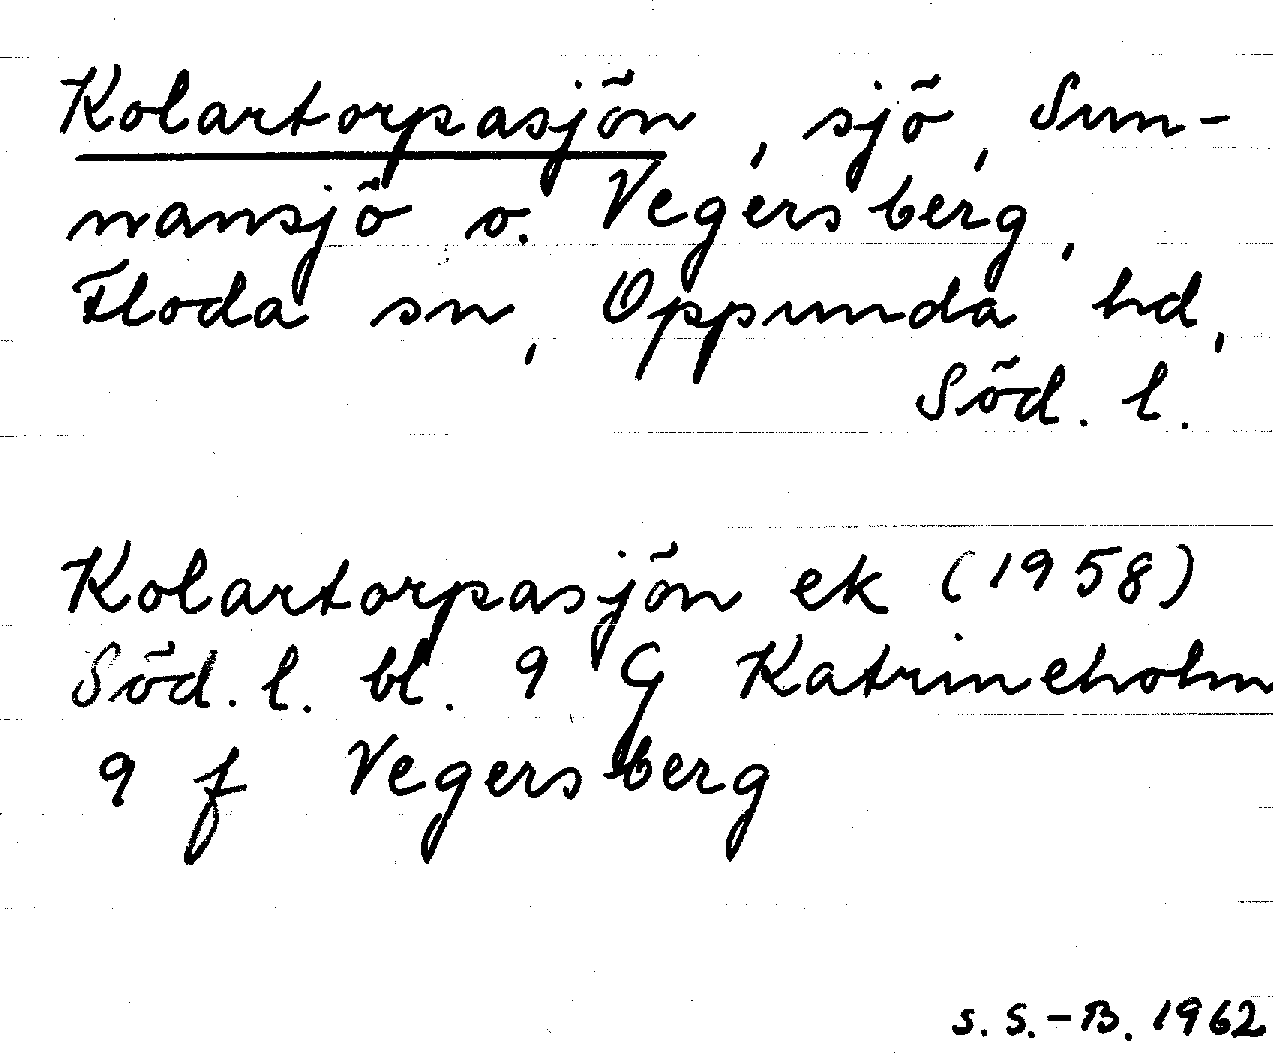 Kolartorpasjön, sjö, Sun-
nansjö o. Vegersberg,
Floda sn, Oppunda hd,
Söd. l.
Kolartorpasjön ek (1958)
Söd. l. bl. 9 G Katrineholm
9 f Vegersberg
S. S.-B. 1962